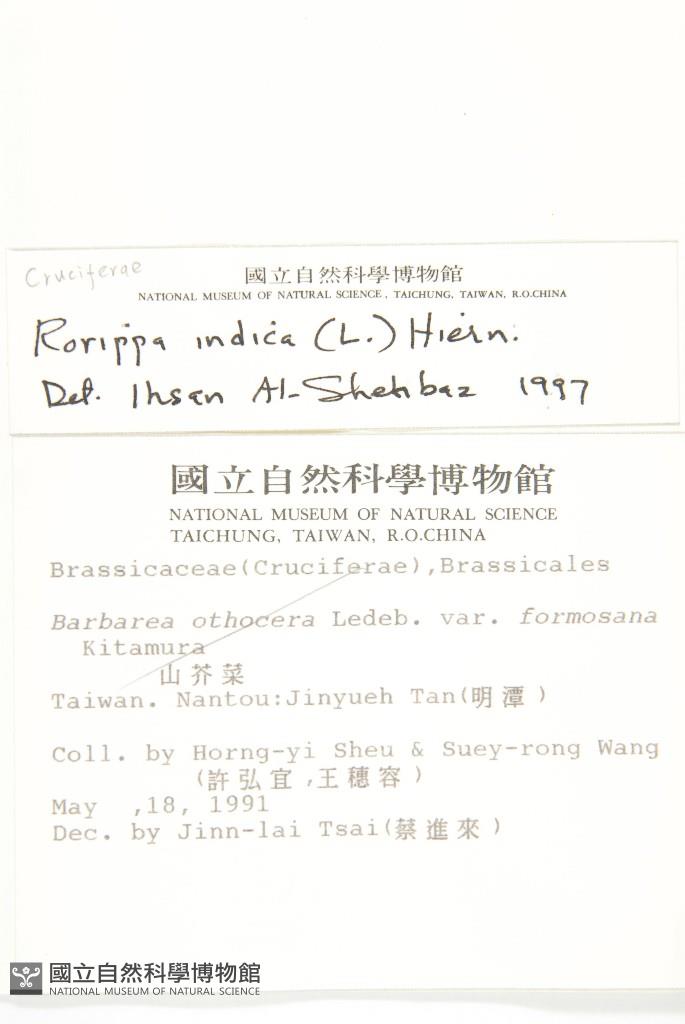 Cruciferae
國立自然科學博物館
NATIONAL MUSEUM OF NATURAL SCIENCE, TAICHUNG, TAIWAN, R.O.CHINA
Rorippa indica (L.) Hiern.
Det. Ihsan Al-Shehbaz 1997
國立自然科學博物館
NATIONAL MUSEUM OF NATURAL SCIENCE
TAICHUNG, TAIWAN, R.O.CHINA
Brassicaceae(Cruciferae),Brassicales
Barbarea othocera Ledeb. var. formosana
Kitamura
山芥菜
Taiwan. Nantou:Jinyueh Tan(明潭)
Coll. by Horng-yi Sheu & Suey-rong Wang
(許弘宜,王穗容)
May ,18, 1991
Dec. by Jinn-lai Tsai(蔡進來)
國立自然科學博物館
NATIONAL MUSEUM OF NATURAL SCIENCE